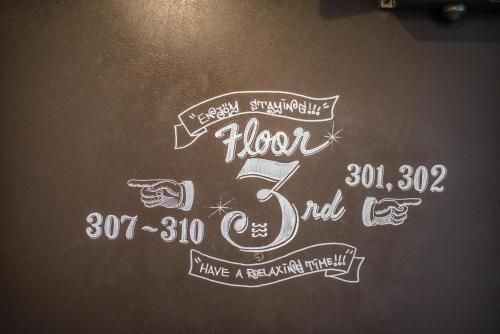 "ENJOY STAYING!!!"
Floor
3rd
301, 302
307~310
"HAVE A RELAXING TIME!!!"